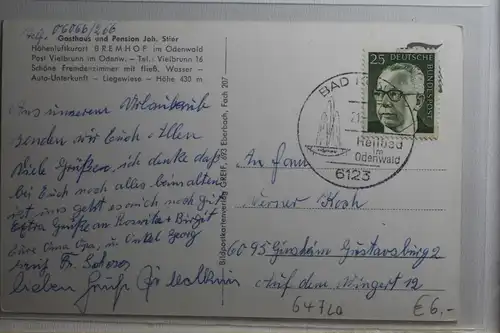 Telf. 06066/266
Gasthaus und Pension Joh. Stier
Höhenluftkurort BREMHOF im Odenwald
Post Vielbrunn im Odenw. – Tel.: Vielbrunn 16
Schöne Fremdenzimmer mit fließ. Wasser –
Auto-Unterkunft – Liegewiese – Höhe 430 m
Aus unserem Urlaub
senden wir Euch Allen
Viele Grüße, ich denke daß
bei Euch noch alles beim alten
ist uns geht es noch gut
Extra Grüße an Roswita + Birgit
Eure Oma Opa, u. Onkel Georg
lieben Gruß
Bildpostkartenverlag GREIF, 693 Eberbach, Fach 207
25 DEUTSCHE BUNDESPOST
BAD
Heilbad
im
Odenwald
6123
An Fam
Werner Koch
6095 Ginsheim Gustavsburg 2
Auf dem Wingert 12
€ 6,-